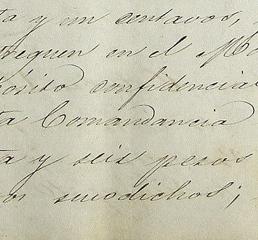 ta y un centavos,
treguen en el Mo
pósito confidencial
ta Comandancia
ta y seis pesos
os susodichos;